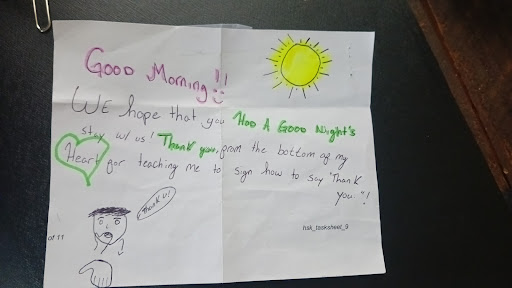 Good Morning!!
WE hope that you Had A Good Night's
stay w/ us! Thank you, from the bottom of my
Heart for teaching me to sign how to say "Thank
you"!
Thank U!
of 11